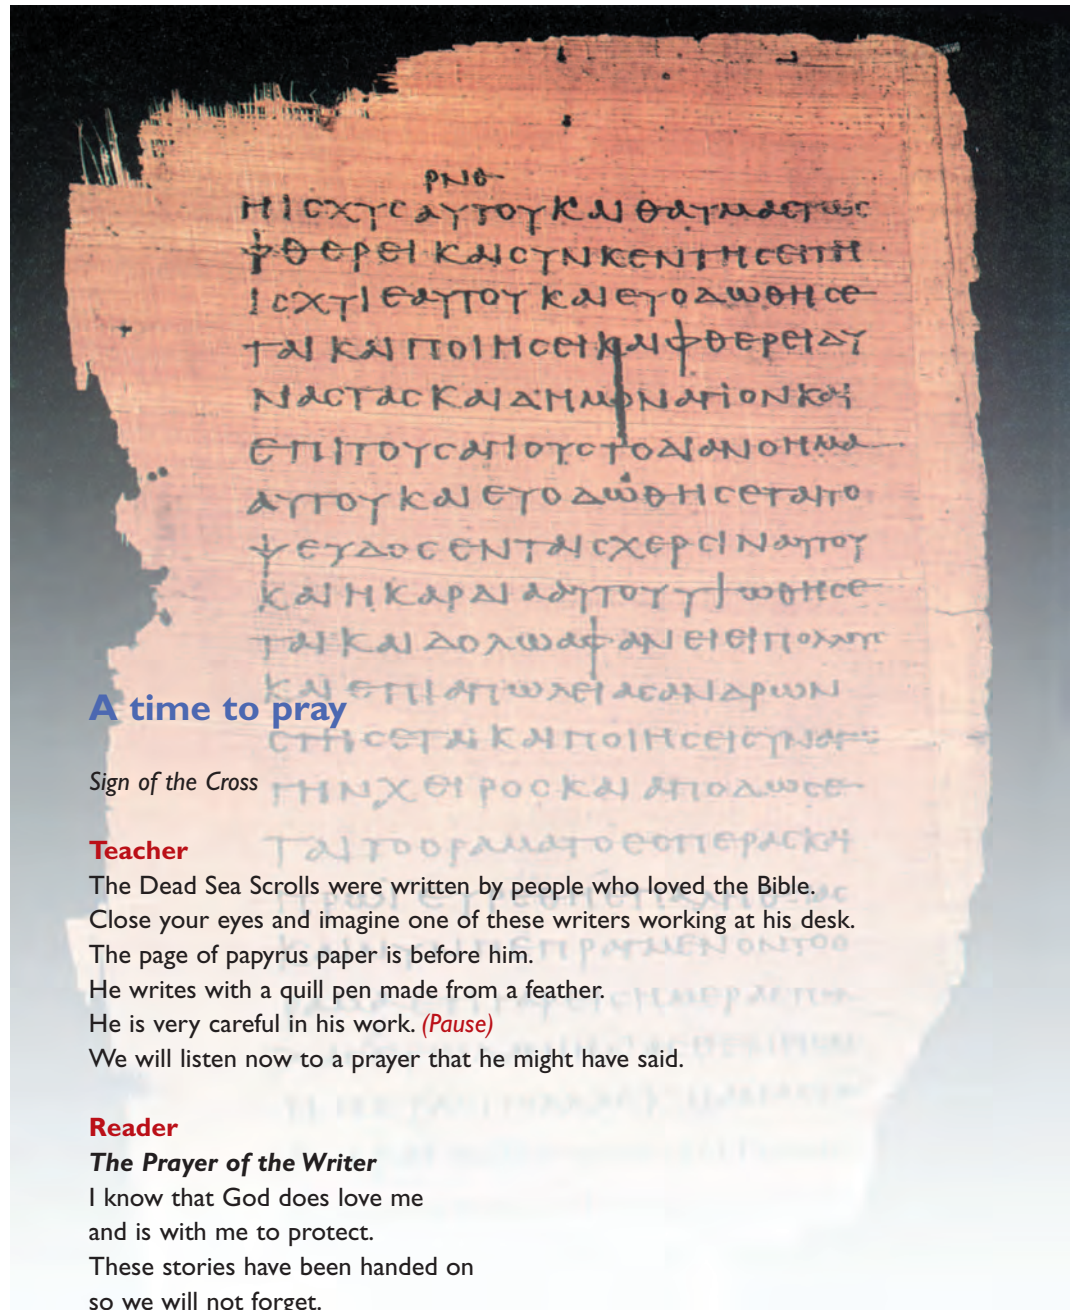 ΡΝΘ
ΗΙCΧΥCΑΥΤΟΥΚΑΙΘΑΥΜΑCΤΩC
ΦΘΕΡΕΙΚΑΙCΥΝΚΕΝΤΗCΕΙΤΗ
ΙCΧΥΙΕΑΥΤΟΥΚΑΙΕΥΟΔΩΘΗCΕ
ΤΑΙΚΑΙΠΟΙΗCΕΙΚΑΙΦΘΕΡΕΙΔΥ
ΝΑCΤΑCΚΑΙΔΗΜΟΝΑΓΙΟΝΚΑΙ
ΕΠΙΤΟΥCΑΓΙΟΥCΤΟΔΙΑΝΟΗΜΑ
ΑΥΤΟΥΚΑΙΕΥΟΔΩΘΗCΕΤΑΙΤΟ
ΨΕΥΔΟCΕΝΤΑΙCΧΕΡCΙΝΑΥΤΟΥ
ΚΑΙΗΚΑΡΔΙΑΑΥΤΟΥΥΨΩΘΗCΕ
ΤΑΙΚΑΙΔΟΛΩΑΦΑΝΕΙΕΙ
ΚΑΙΕΠΙΑΠΩΛΕΙΑCΑΝΔΡΩΝ
A time to pray
CΤΗCΕΤΑΙΚΑΙΠΟΙΗCΕΙ
Sign of the Cross
ΓΗΝΧΕΙΡΟCΚΑΙΑΠΟΔΩCΕ
ΤΑΙΤΟΟΡΑΜΑΤΟΕCΠΕΡΑCΚΑΙ
Teacher
The Dead Sea Scrolls were written by people who loved the Bible.
Close your eyes and imagine one of these writers working at his desk.
The page of papyrus paper is before him.
He writes with a quill pen made from a feather.
He is very careful in his work. (Pause)
We will listen now to a prayer that he might have said.
Reader
The Prayer of the Writer
I know that God does love me
and is with me to protect.
These stories have been handed on
so we will not forget.